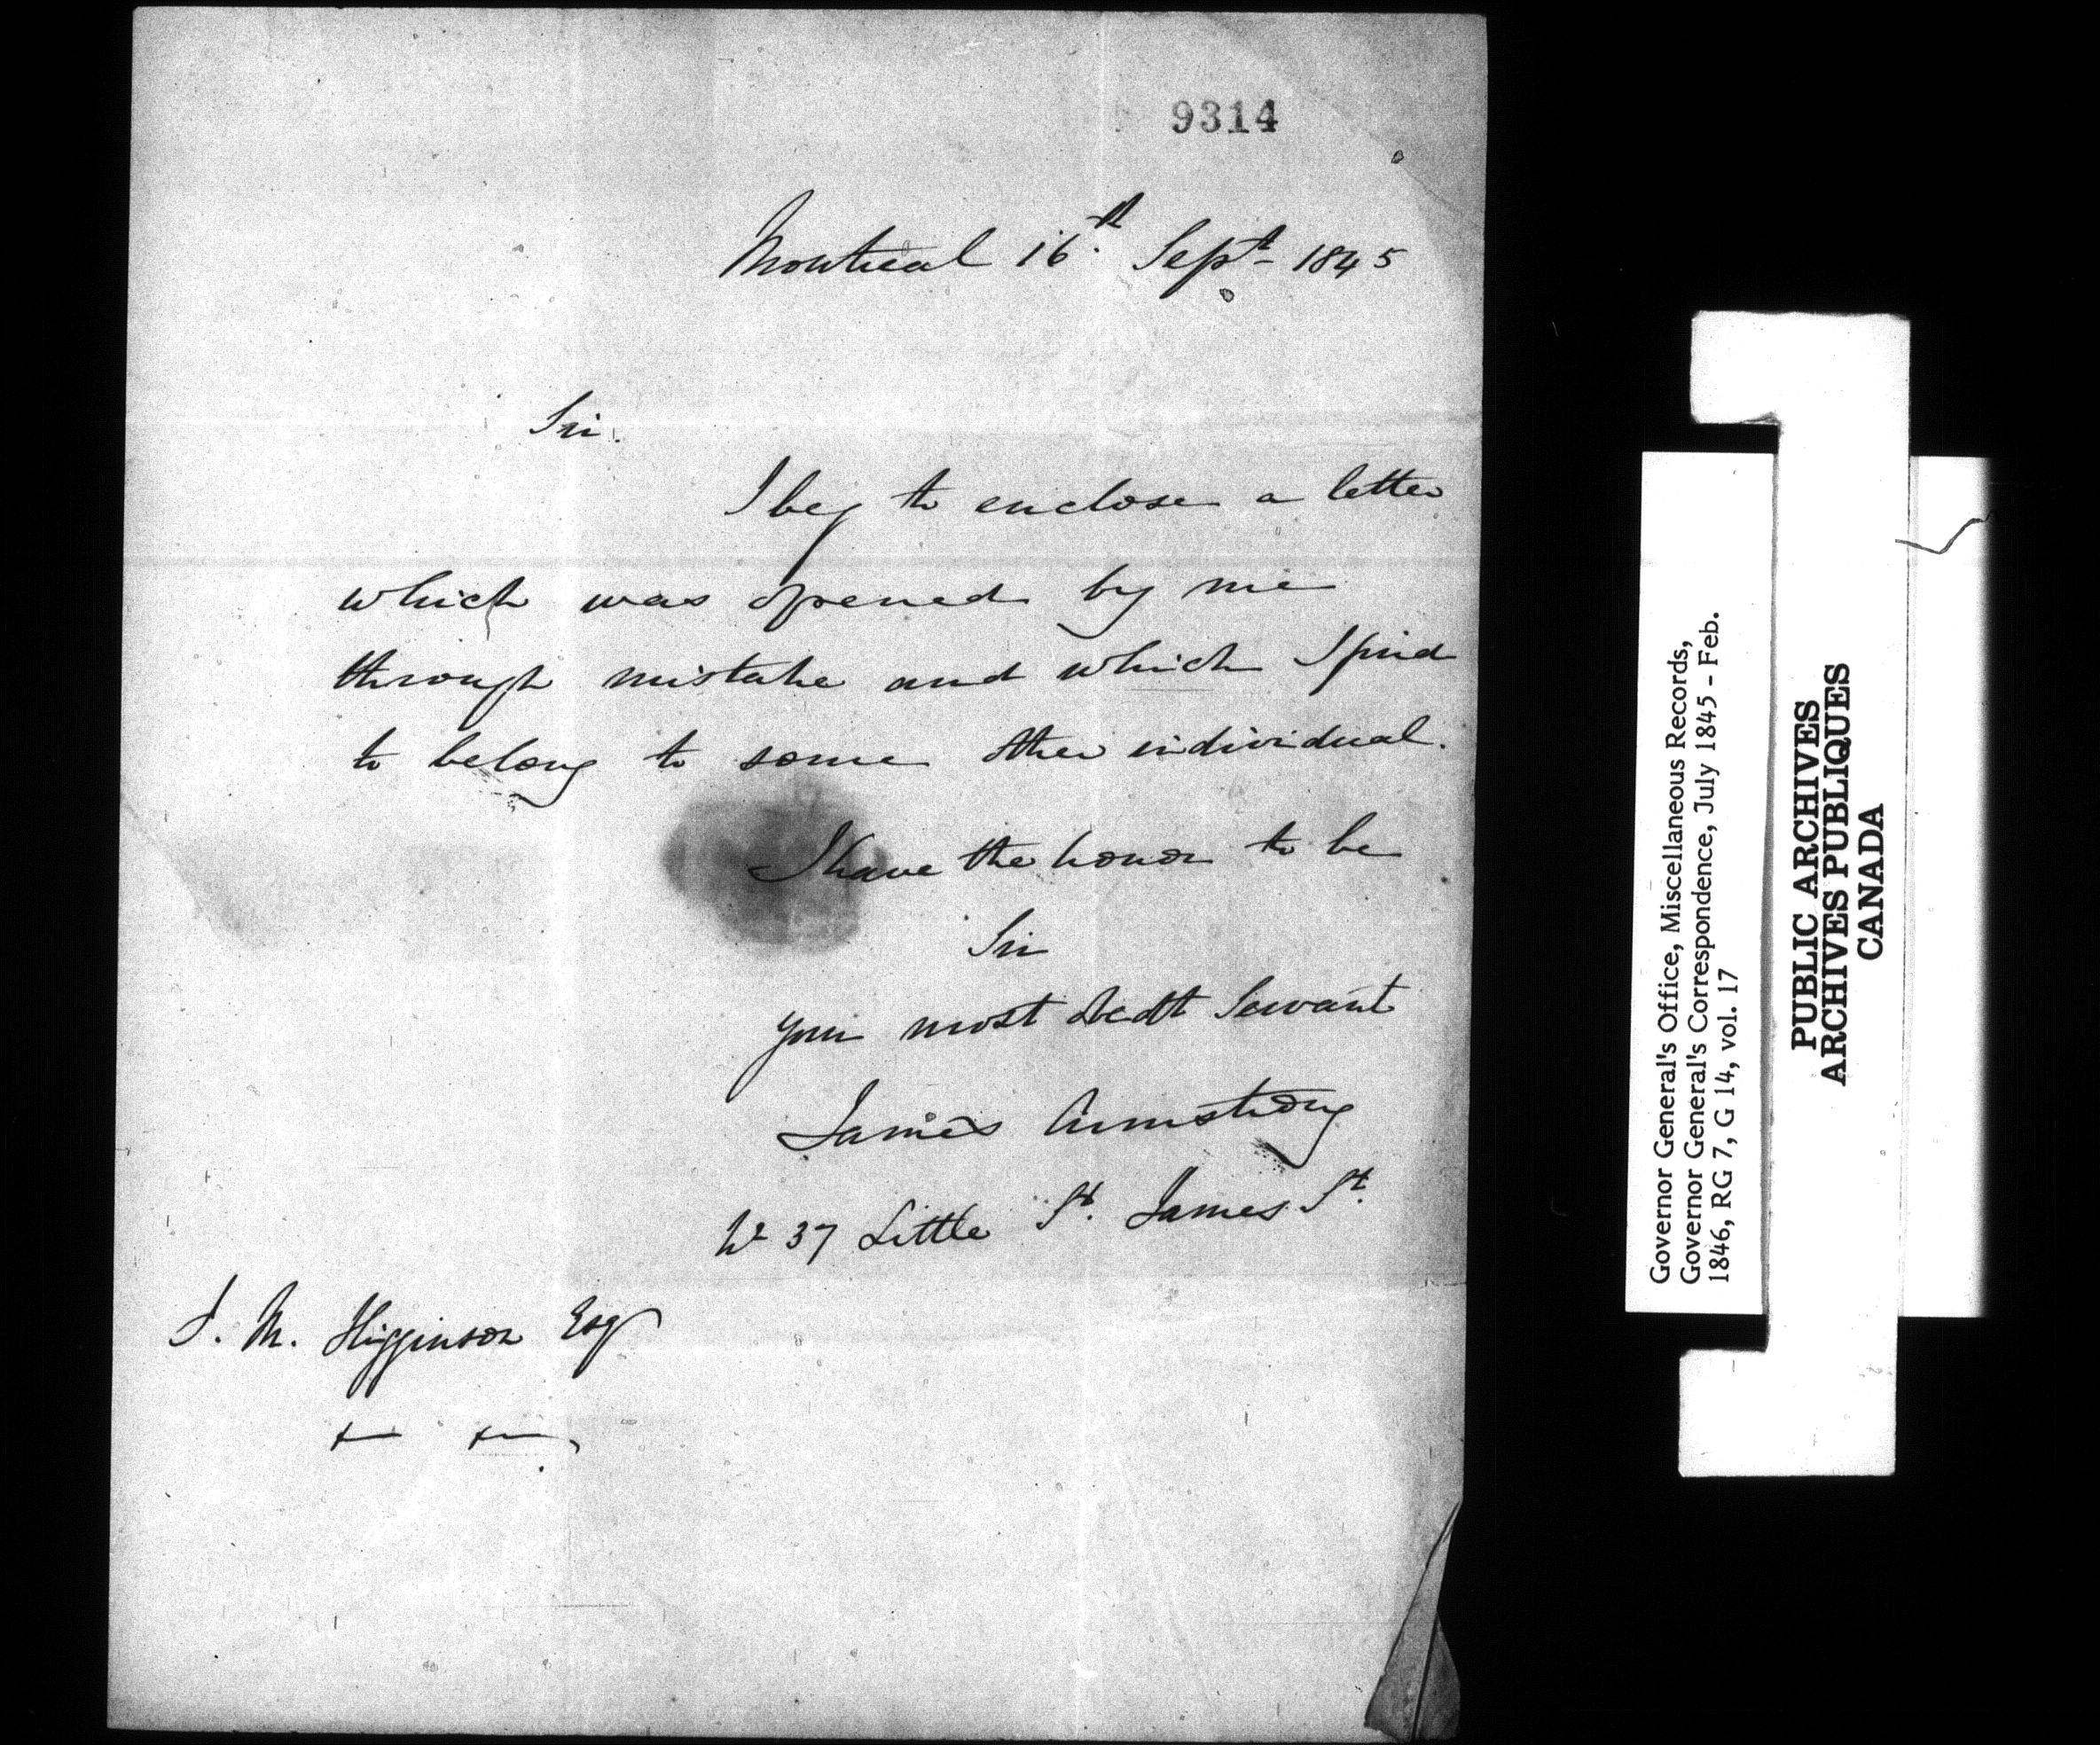 9314
Montreal 16th Sept 1845
Sir.
I beg to enclose a letter
which was opened by me
through mistake and which I find
to belong to some other individual.
I have the honor to be
Sir
your most Obedt Servant
James Armstrong
No 37 Little St. James St.
J. M. Higginson Esq
Governor General's Office, Miscellaneous Records,
Governor General's Correspondence, July 1845 - Feb.
1846, RG 7, G 14, vol. 17
PUBLIC ARCHIVES
ARCHIVES PUBLIQUES
CANADA